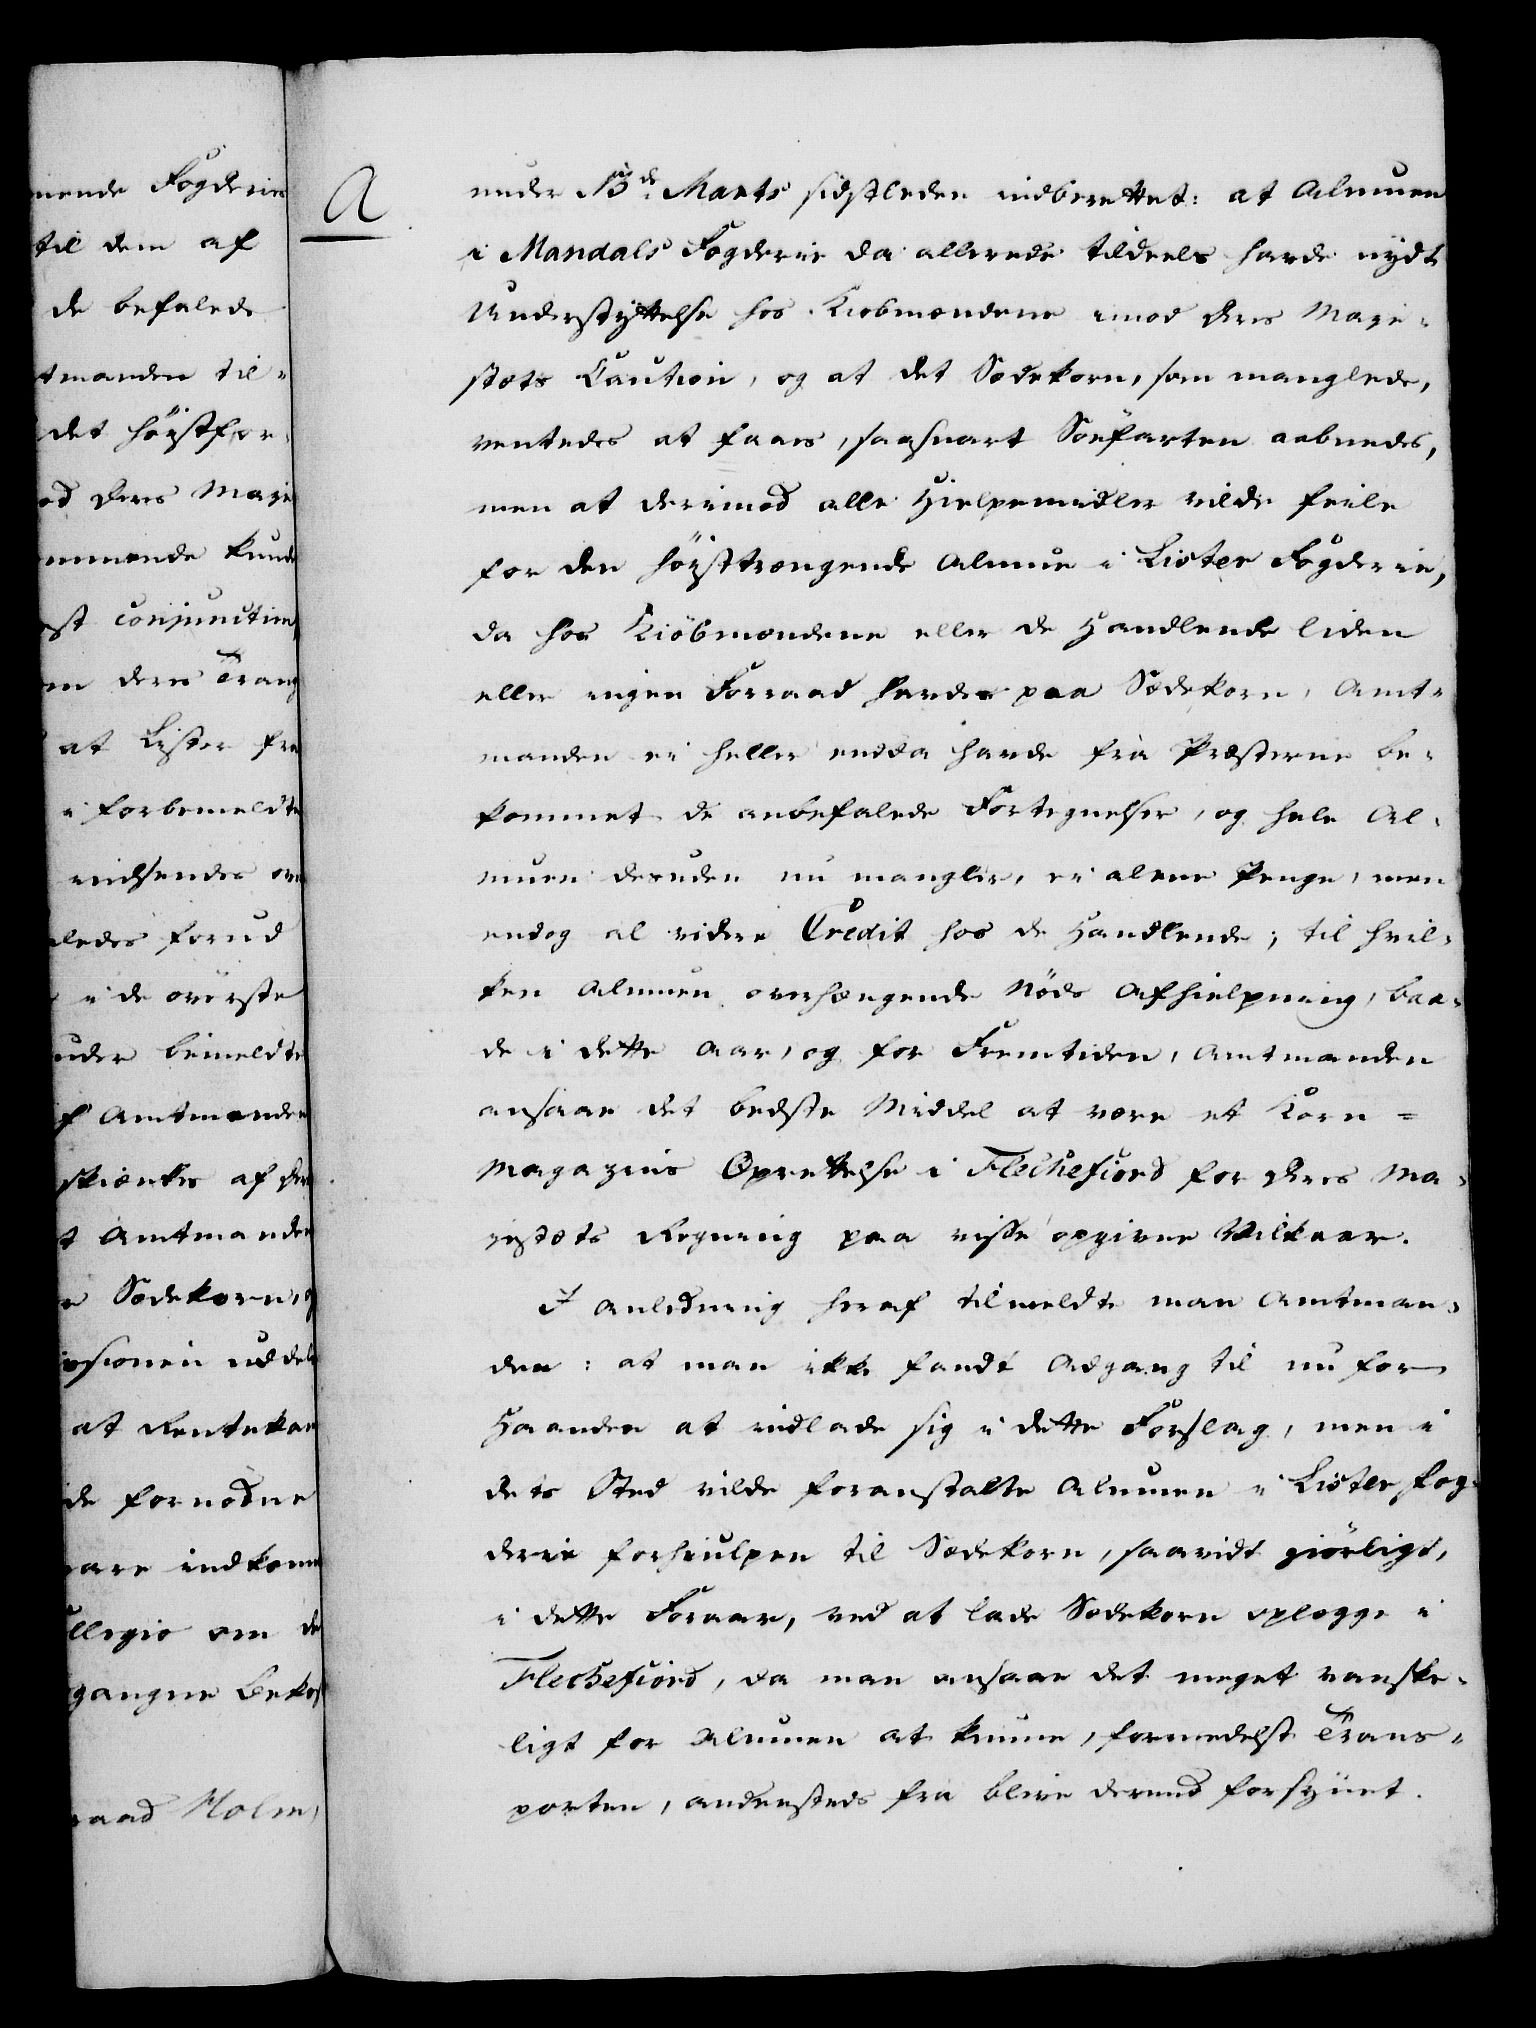 mende Fogderier
til dem af
de befalede
tmanden til-
det høistfor-
od Deres Maje
ommende kunde
st conjunctim
en deres Trang
at Lister fra
i forbemeldte
indsendes om
ledes forud
i de øverste
under bemeldte
f Amtmanden
skienkes af Der
t Amtmanden
e Sædekorn, og
isionen uddel
at Rentekam
de fornødne
vare indkomm
ollegio om de
gangne Bekos
raad Holm,
a
under 15de Marts sidstleden indberettet: at Almuen
i Mandals Fogderie da allerede tildeels havde nydt
Understyttelse hos Kiøbmændene imod Deres Maje-
stæts Caution, og at det Sædekorn, som manglede,
ventedes at faaes, saasnart Søefarten aabnedes,
men at derimod alle Hielpemidler vilde feile
for den høisttrængende Almue i Lister Fogderie,
da hos Kiøbmændene eller de Handlende liden
eller ingen Forraad havdes paa Sædekorn, Amt-
manden ei heller endda havde fra Præsterne be-
kommet de anbefalede Fortegnelser, og hele Al-
muen desuden nu mangler, ei alene Penge, men
endog al videre Credit hos de Handlende; til hvil-
ken Almuen overhængende Nøds Afhielpning, baa-
de i dette Aar, og for Fremtiden, Amtmanden
ansaae det bedste Middel at være et Korn-
Magazins Oprettelse i Flechefiord for Deres Ma-
jestæts Regning paa visse opgivne Vilkaar.
I Anledning heraf tilmeldte man Amtman-
den: at man ikke fandt Adgang til nu for
Haanden at indlade sig i dette Forslag, men i
dets Sted vilde foranstalte Almuen i Lister Fog-
derie forhiulpen til Sædekorn, saavidt giørligt,
i dette Foraar, ved at lade Sædekorn oplægge i
Flechefiord, da man ansaae det meget vanske-
ligt for Almuen at kunne, formedelst Trans-
porten, andensteds fra blive dermed forsynet.